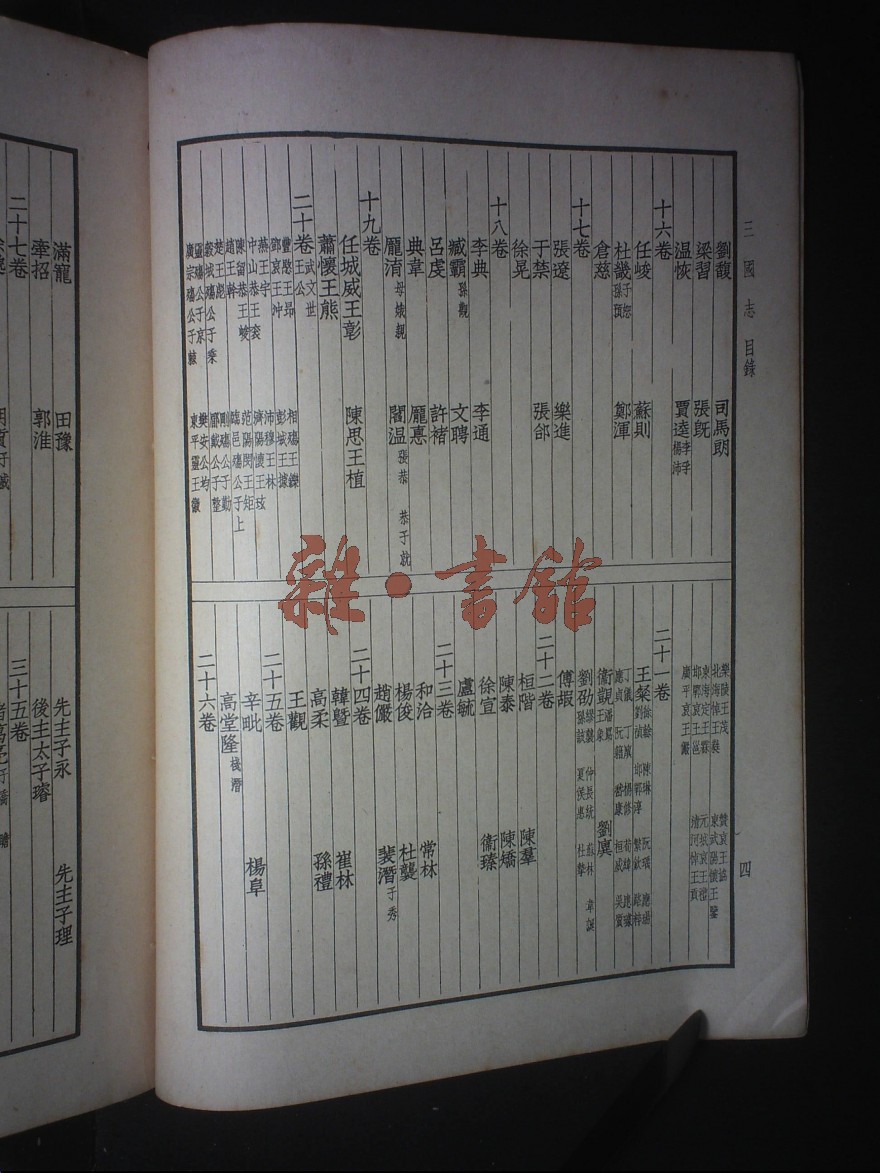 三國志 目錄
四
劉馥 司馬朗
梁習 張既
温恢 賈逵 李孚 楊沛
十六卷
任峻 蘇則
杜畿 子恕 孫預 鄭渾
倉慈
十七卷
張遼 樂進
于禁 張郃
徐晃
十八卷
李典 李通
臧霸 孫觀 文聘
呂虔 許褚
典韋 龐悳
龐淯 母娥親 閻温 張恭 恭子就
十九卷
任城威王彰 陳思王植
蕭懷王熊
二十卷 武文世王公
豐愍王昂 相殤王鑠
鄧哀王沖 彭城王據
燕王宇 沛穆王林
中山恭王袞 濟陽懷王玹
陳留恭王峻 范陽閔王矩
趙王幹 臨邑殤公子上
楚王彪 剛殤公子勤
穀城殤公子乘 郿戴公子整
靈殤公子京 樊安公均
廣宗殤公子棘 東平靈王徽
樂陵王茂 贊哀王協
北海悼王蕤 東武陽懷王鑒
東海定王霖 元城哀王禮
邯鄲哀王邕 清河悼王貢
廣平哀王儼
二十一卷
王粲 徐幹 陳琳 阮瑀 應瑒 劉楨 邯鄲淳 繁欽 路粹
丁儀 丁廙 楊修 荀緯 應璩 應貞 阮籍 嵇康 桓威 吳質
衞覬 潘勗 王象 劉廙
劉劭 繆襲 仲長統 蘇林 韋誕 孫該 夏侯惠 杜摯
傅嘏
二十二卷
桓階 陳羣
陳泰 陳矯
徐宣 衞臻
盧毓
二十三卷
和洽 常林
楊俊 杜襲
趙儼 裴潛 子秀
二十四卷
韓曁 崔林
高柔 孫禮
王觀
二十五卷
辛毗 楊阜
高堂隆 棧潛
二十六卷
滿寵 田豫
牽招 郭淮
二十七卷
先主子永 先主子理
後主太子璿
三十五卷
雜·書館